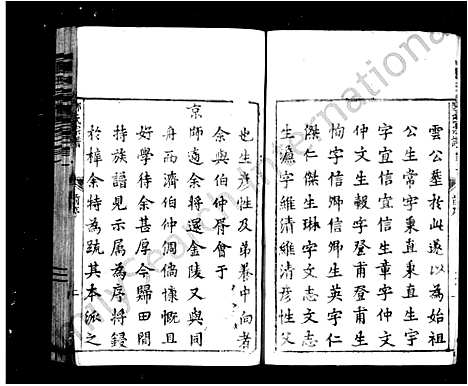 雲公塟於此遂以為始祖
公生常字秉直秉直生宇
宜字信宜信生章字仲文
仲文生毅字登甫登甫生
恂字信卿信卿生英字仁
傑仁傑生琳字文志文志
生濂字維清維清彦性父
也生彦性及弟泰中向者
余與伯仲胥會于
京師適余将還金陵又與同
舟西濟伯仲凋倘慷慨且
好學待余甚厚今歸田間
持族譜見示属為序將鋟
於梓余特為䟽其本派之